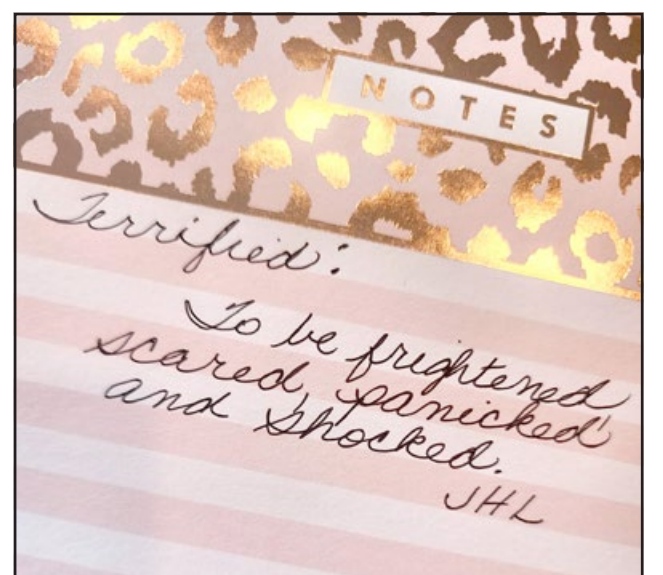 NOTES
Terrified:
To be frightened
scared, panicked
and shocked.
JHL